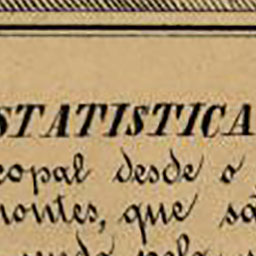 STATISTICA
copal desde o
montes, que sã